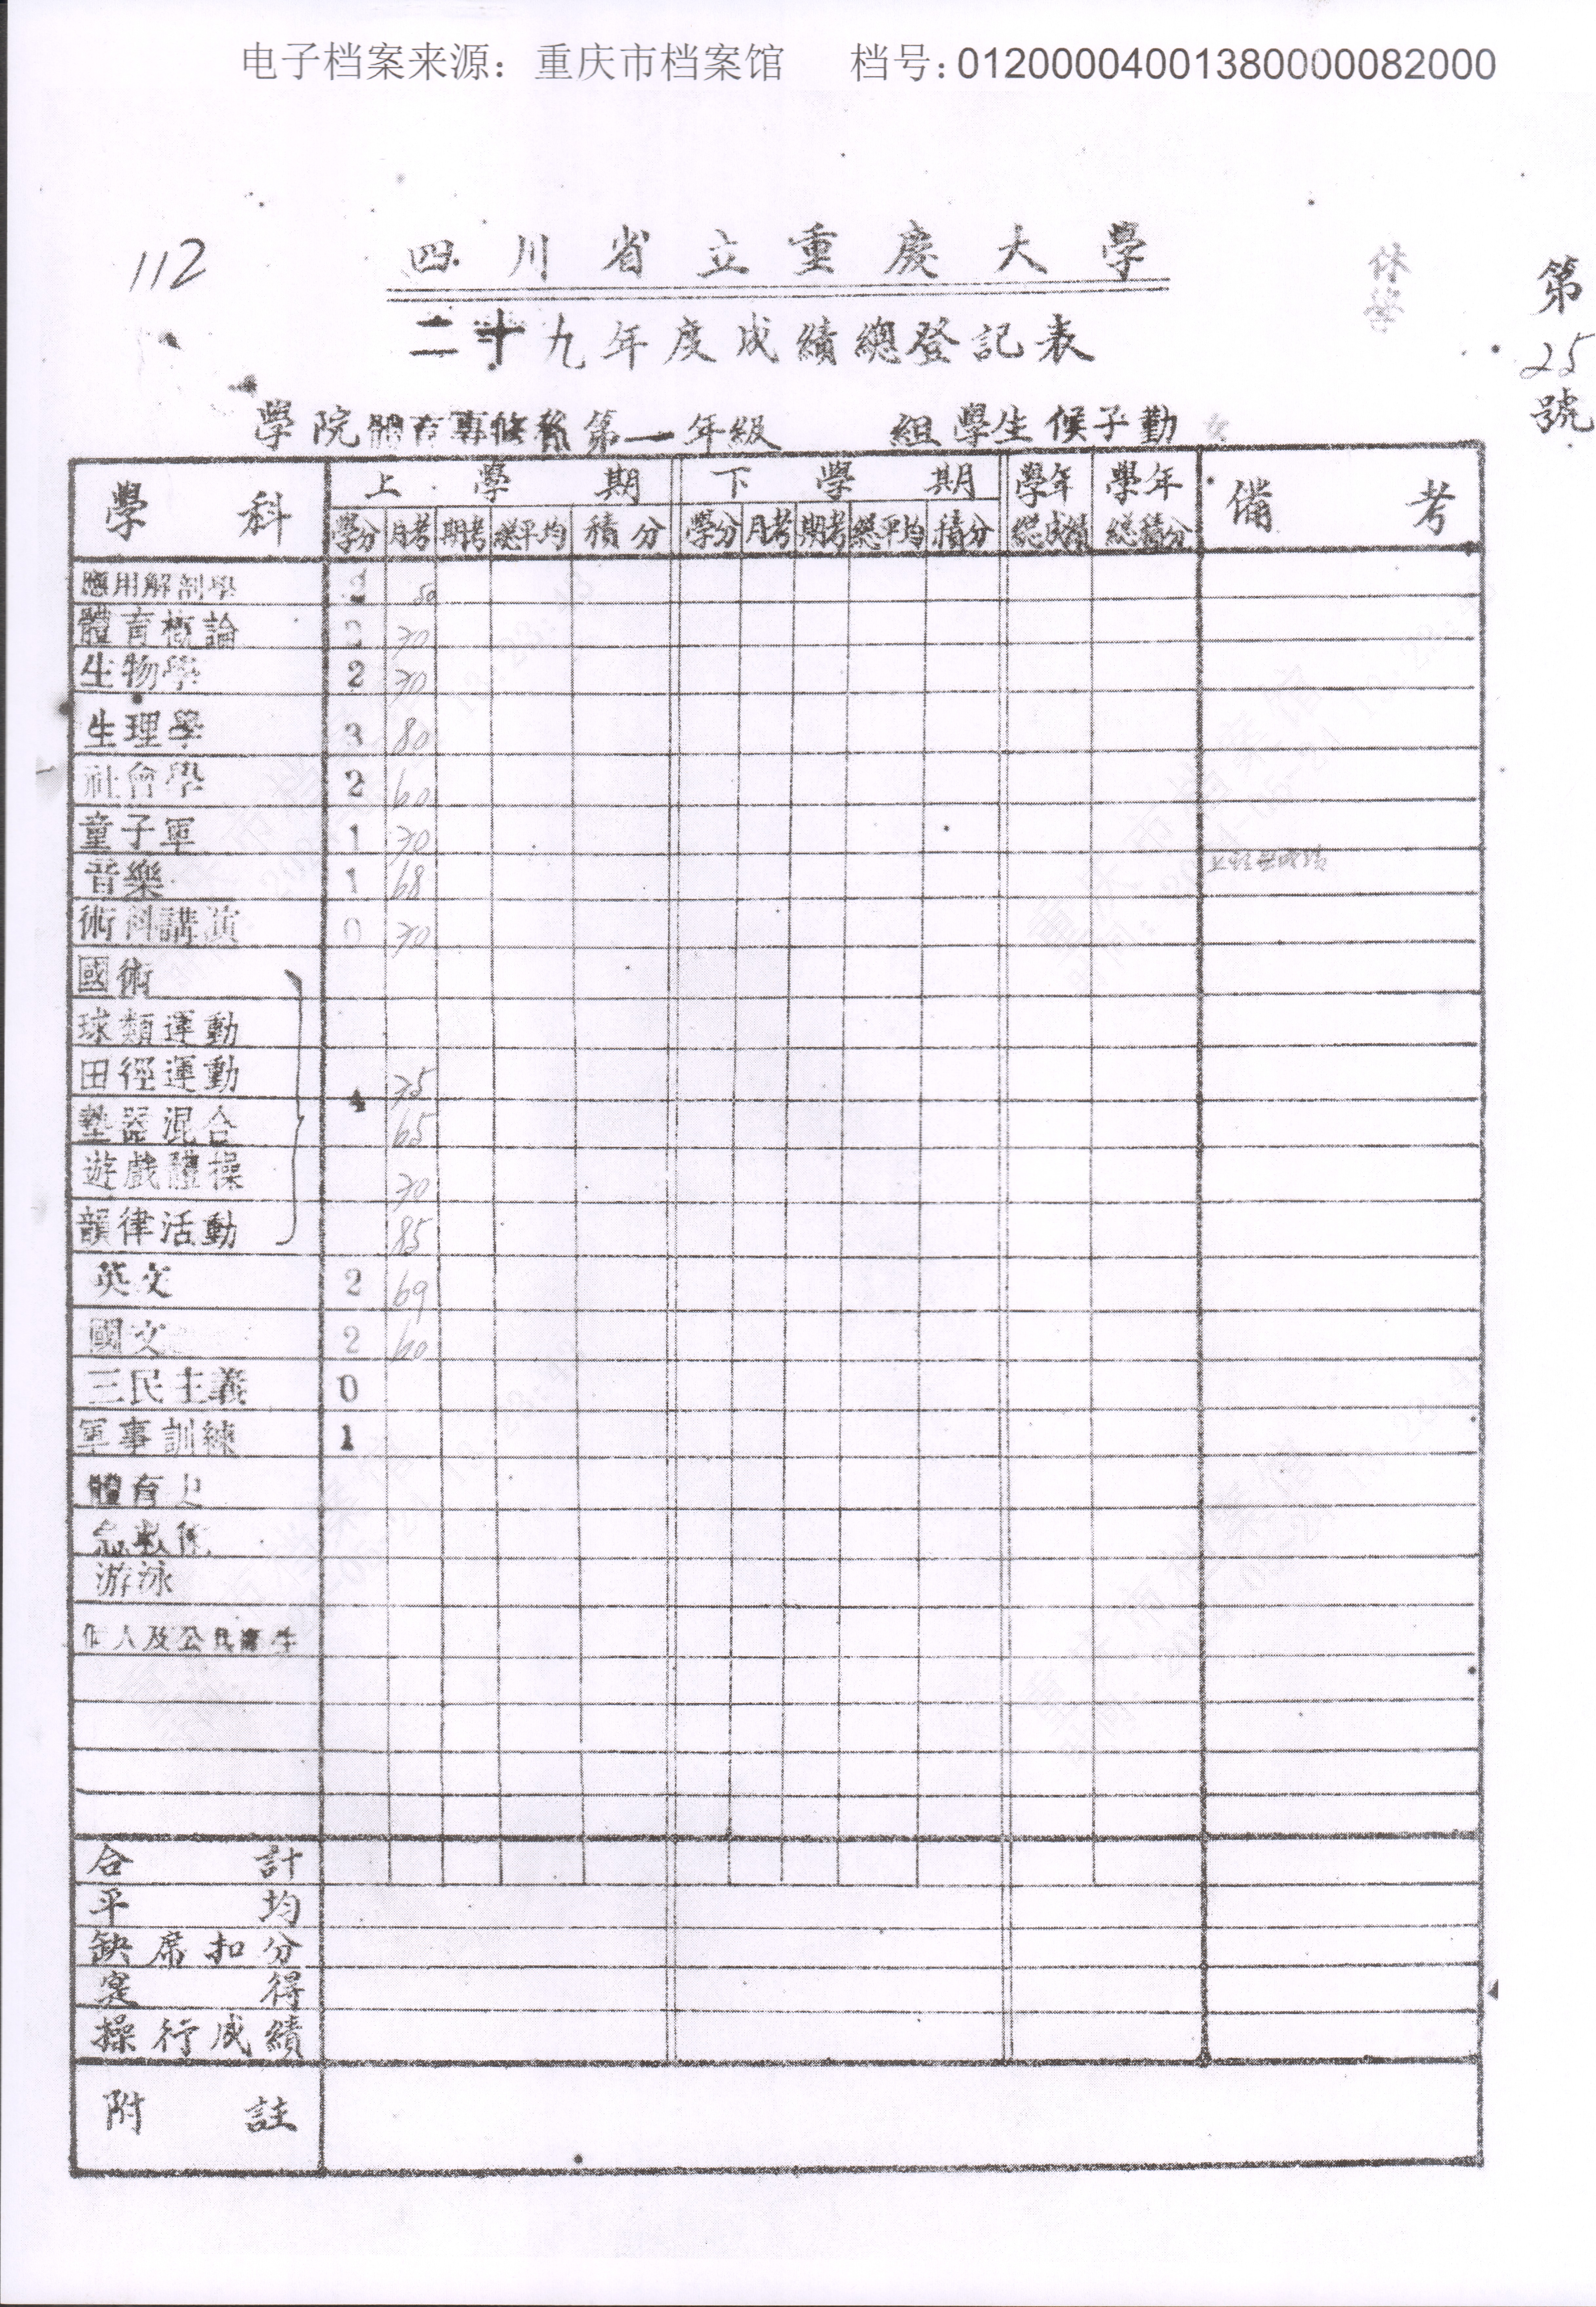 电子档案来源：重庆市档案馆 档号：01200004001380000082000
112
四川省立重慶大學
休學
第25號
二十九年度成績總登記表
學院體育專修科第一年級 組學生候子勤 女
學科 上學期 下學期 學年總成績 學年總積分 備考
學分 月考 期考 總平均 積分 學分 月考 期考 總平均 積分
應用解剖學 80
體育概論 70
生物學 2 70
生理學 3 80
社會學 2 60
童子軍 1 70
音樂 1 68
術科講演 0 70
國術
球類運動
田徑運動 4 75
墊器混合 65
遊戲體操 70
韻律活動 85
英文 2 69
國文 2 60
三民主義 0
軍事訓練 1
體育史
急救術
游泳
個人及公民衛生
合計
平均
缺席扣分
寔得
操行成績
附註